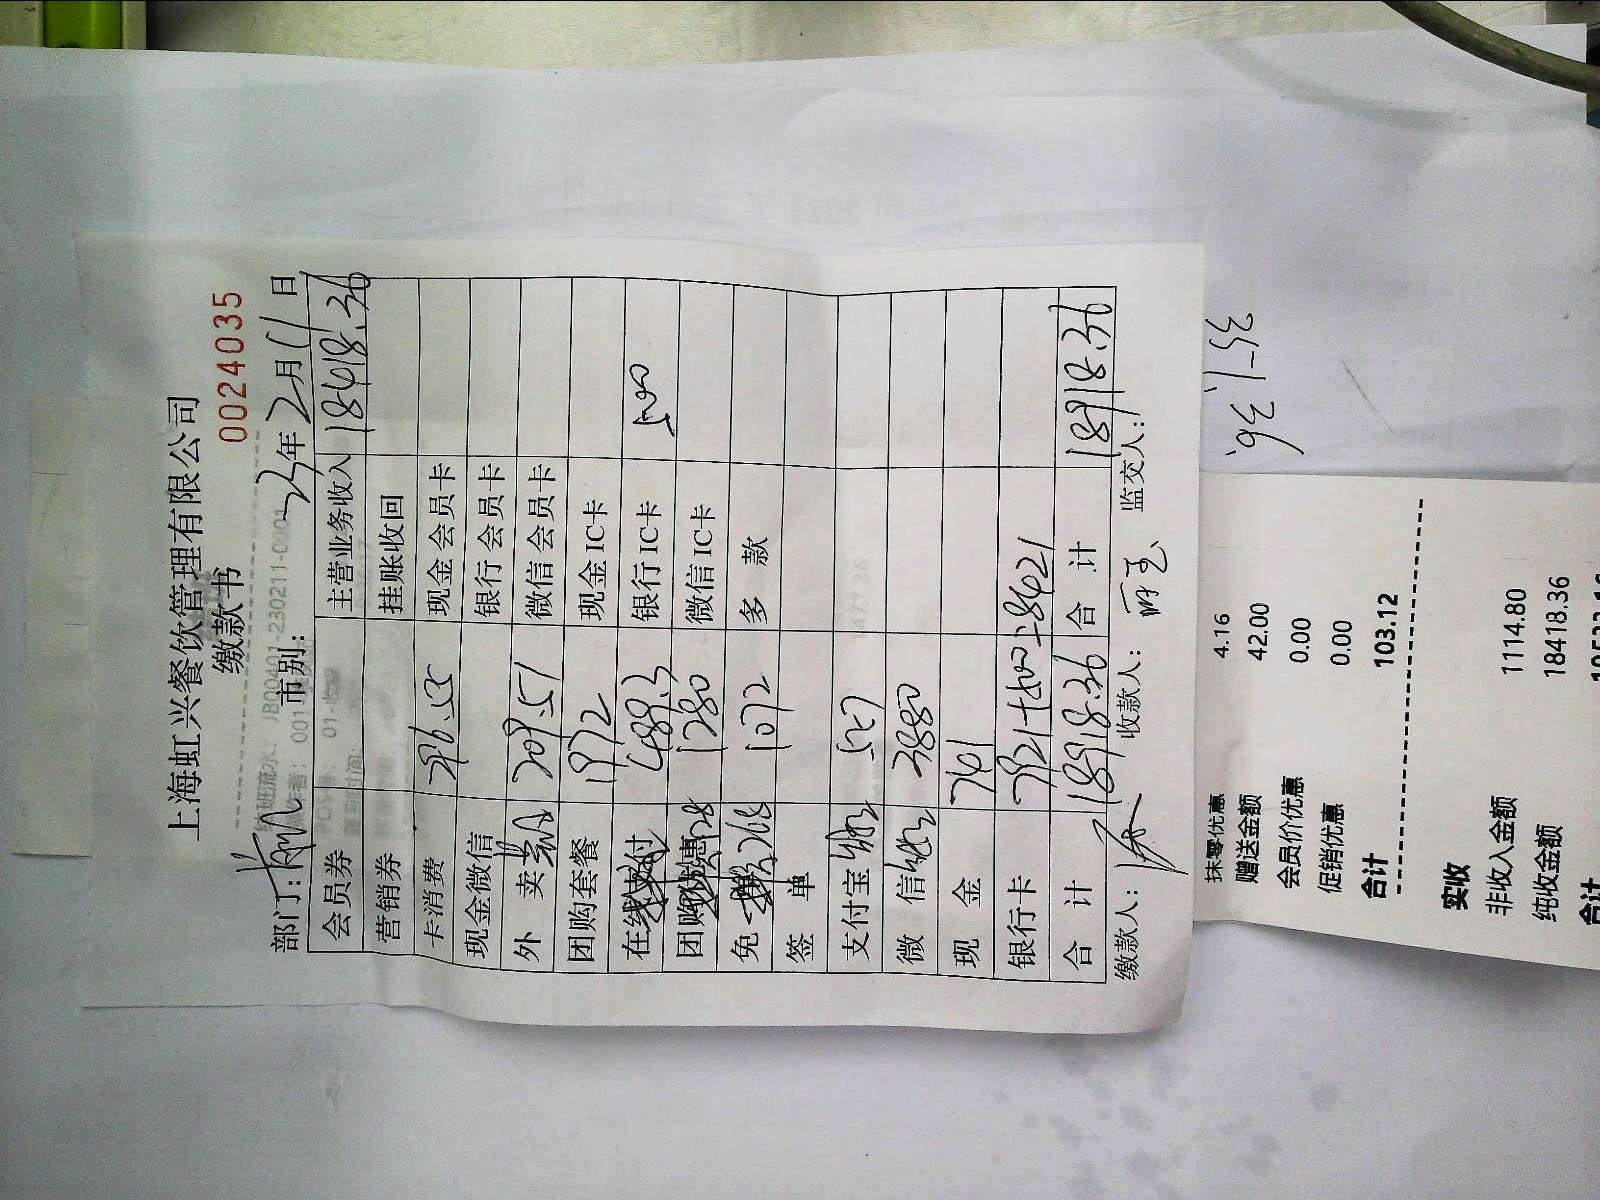 上海虹兴餐饮管理有限公司
缴款书
0024035
部门: 市别: 23年2月11日
会员券 主营业务收入 18418.36
营销券 挂账收回
卡消费 296.55 现金会员卡
现金微信 银行会员卡
外卖 209.51 微信会员卡
团购套餐 1972 现金IC卡
在线支付 489.3 银行IC卡 500
团购优惠 1280 微信IC卡
免 1072 多款
签单
支付宝 527
微信 3880
现金 761
银行卡 7921+500=8421
合计 18918.36 合计 18918.36
缴款人: 收款人: 监交人:
抹零优惠 4.16
赠送金额 42.00
会员价优惠 0.00
促销优惠 0.00
合计 103.12
实收
非收入金额 1114.80
纯收金额 18418.36
合计